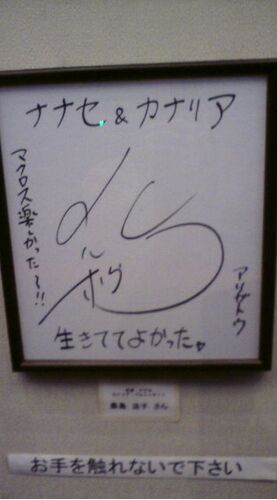 ナナセ & カナリア
マクロス楽しかった〜!!
アリガトウ
生きててよかった。
桑島 法子 さん
お手を触れないで下さい